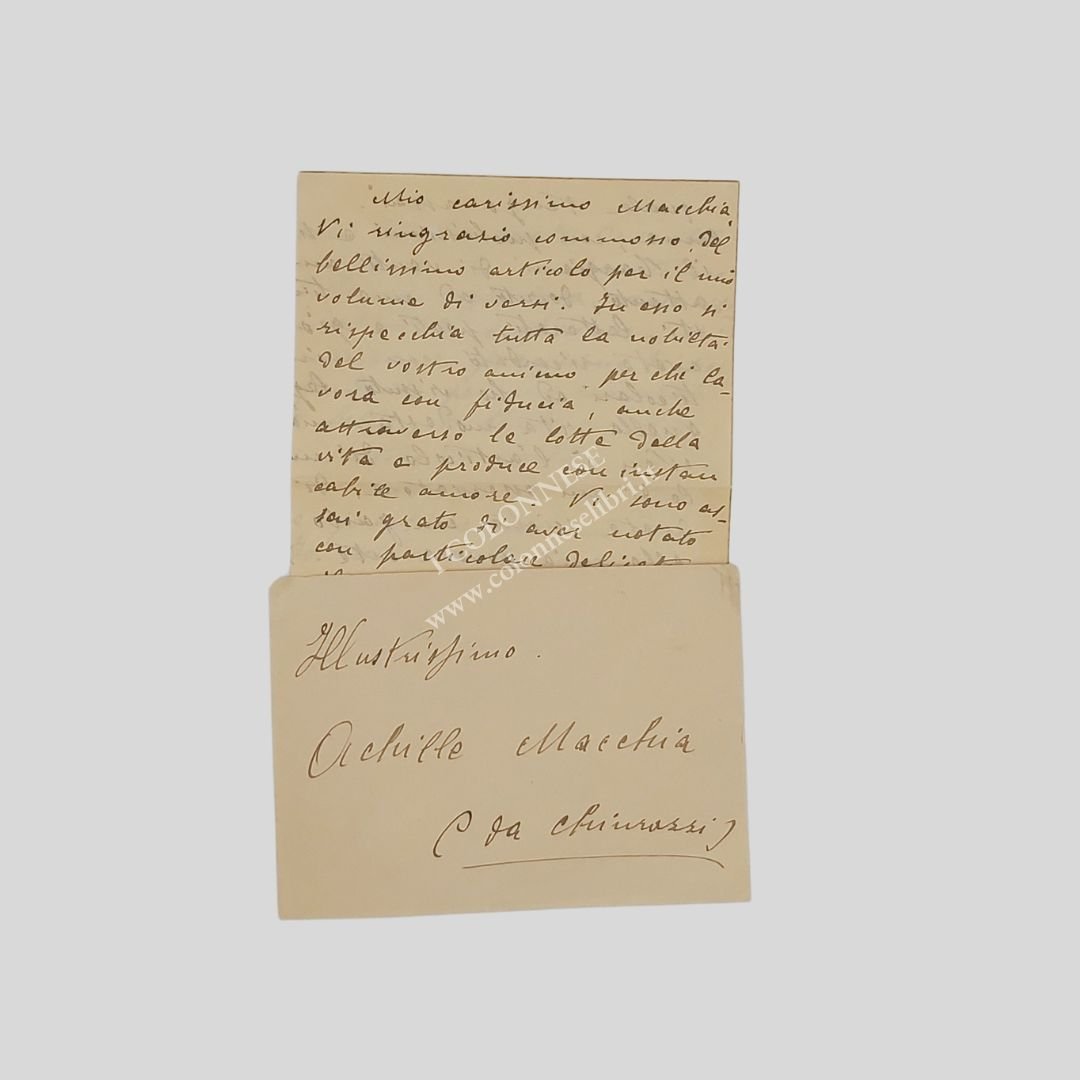 Mio carissimo Macchia,
Vi ringrazio commosso del
bellissimo articolo per il mio
volume di versi. In esso si
rispecchia tutta la nobiltà
del vostro animo per chi la-
vora con fiducia, anche
attraverso le lotte della
vita e produce con instan
cabile amore. Vi sono as-
sai grato di aver notato
con particolare
I COLONNESE
www.colonneselibri.it
Illustrissimo.
Achille Macchia
(da Chiurazzi)